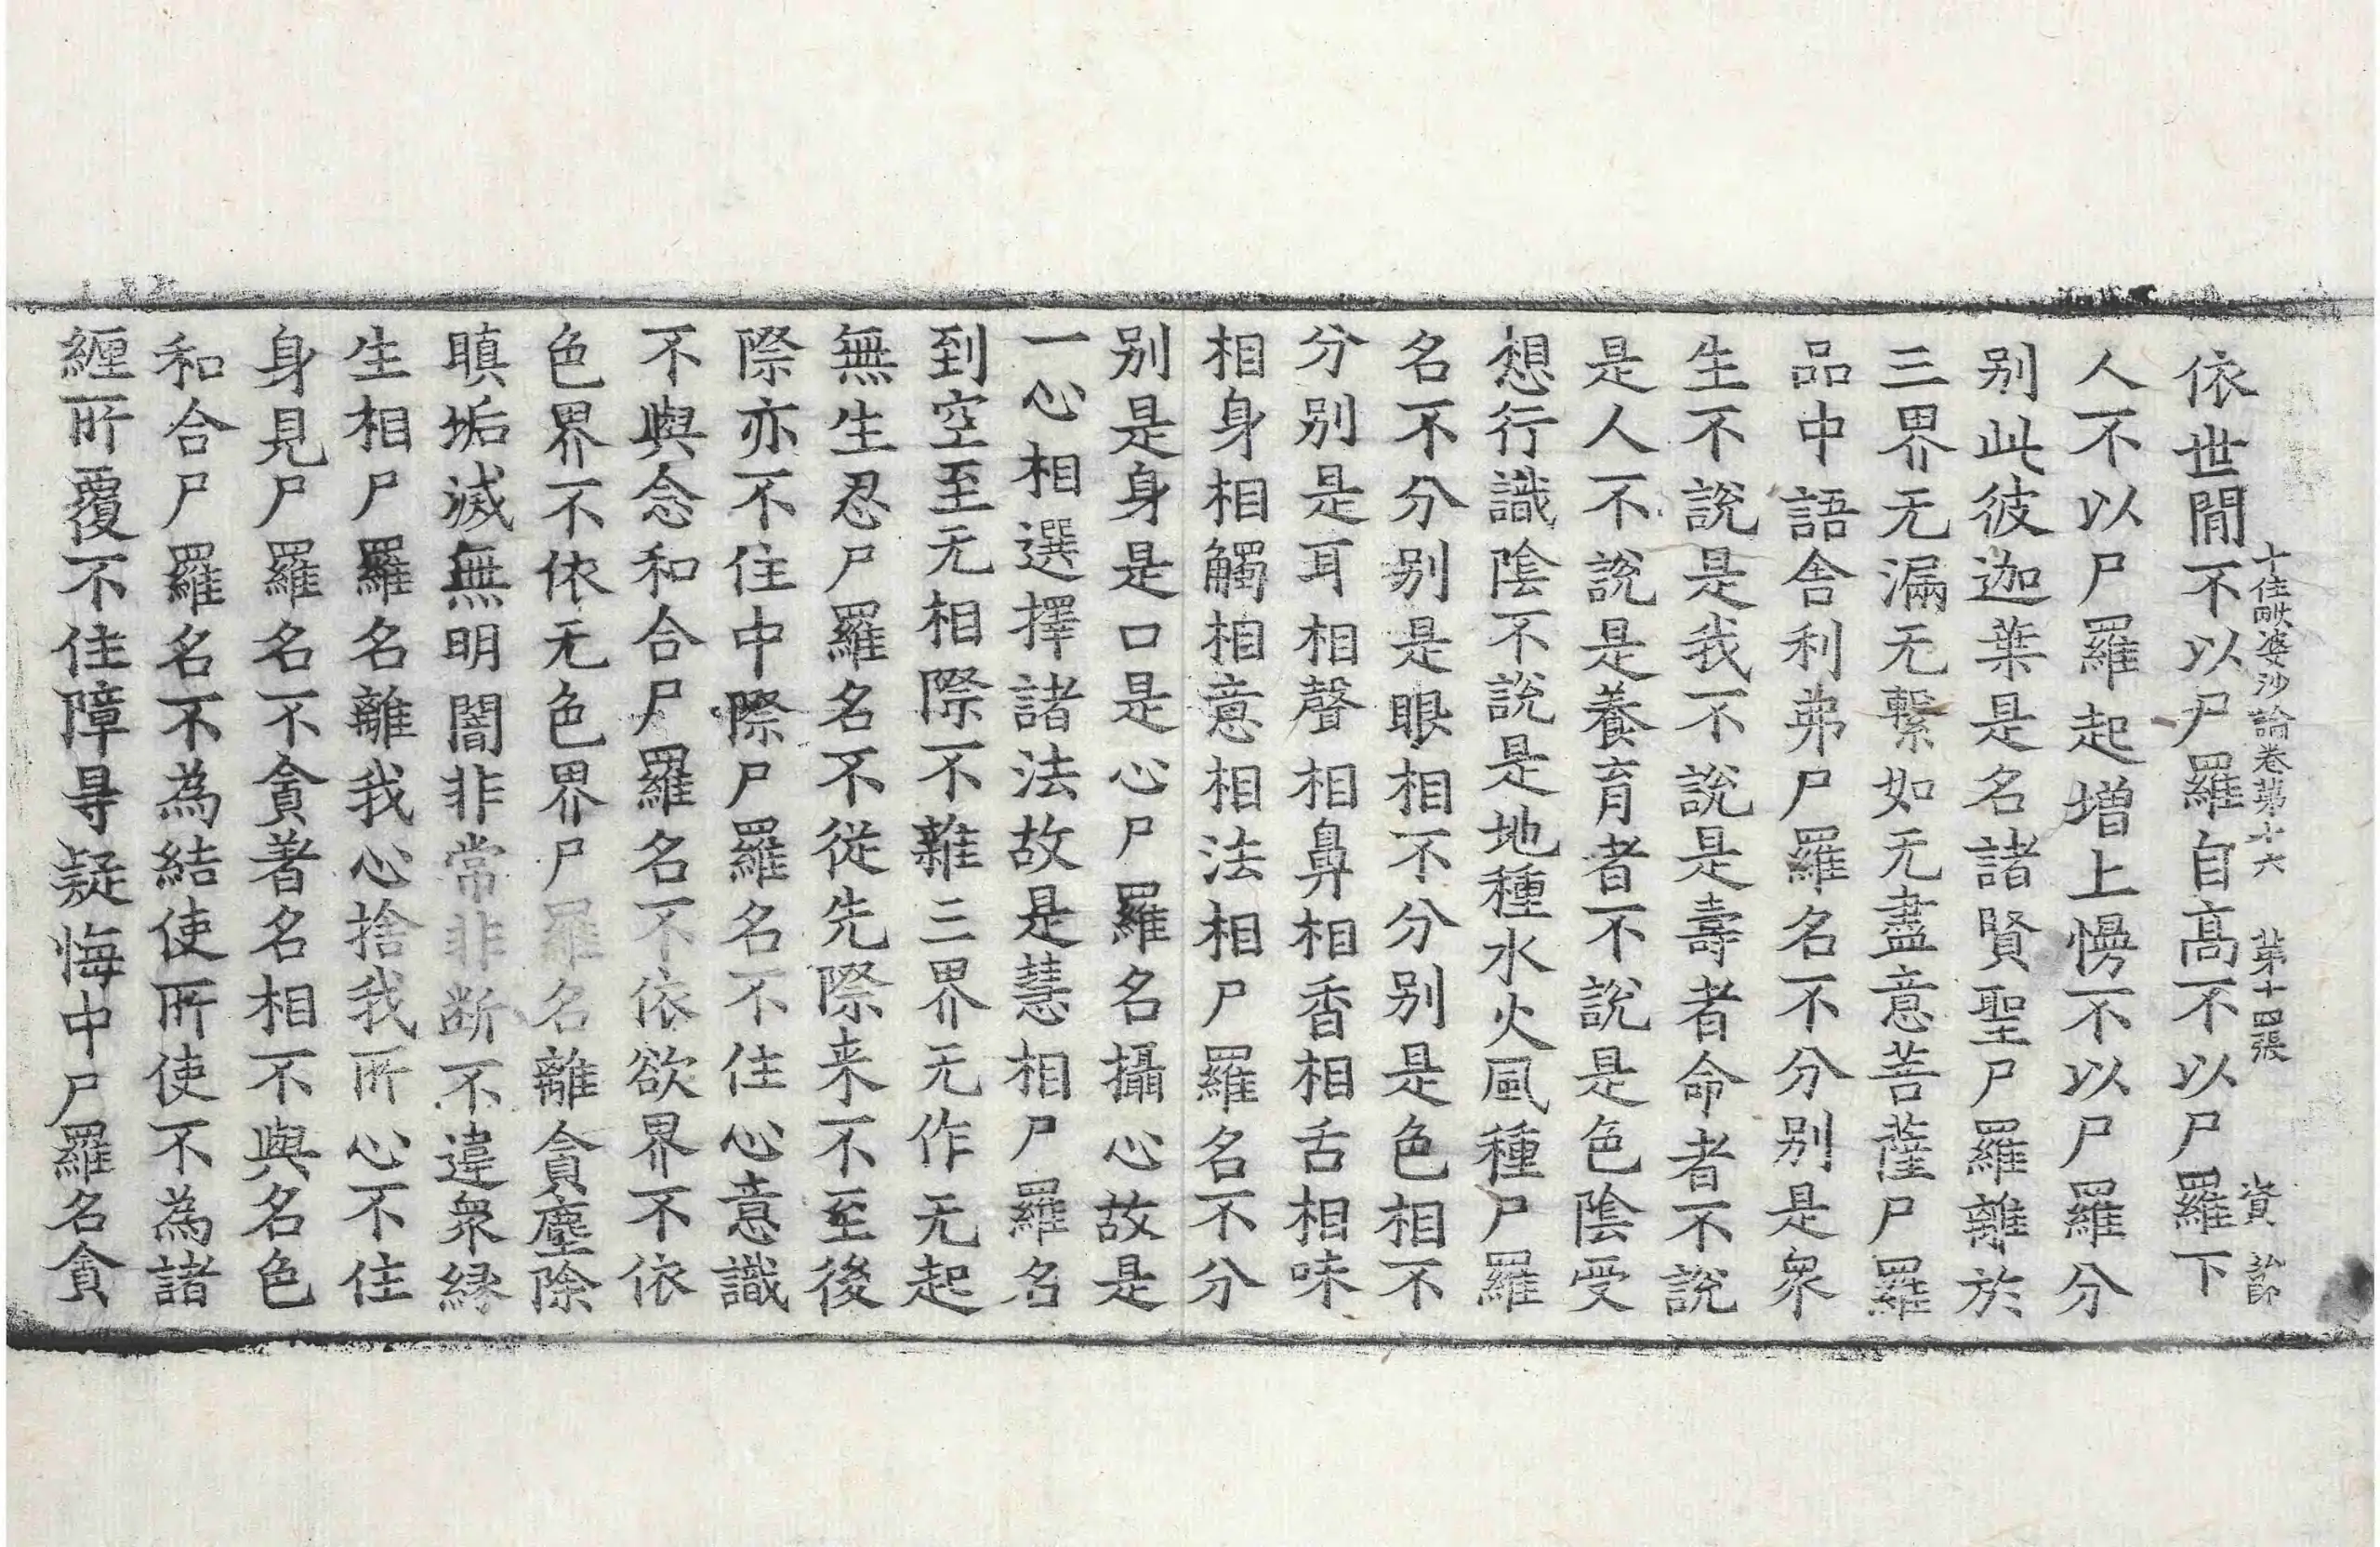 十住毗婆沙論卷第十六　第十四張　資
依世間不以尸羅自高不以尸羅下
人不以尸羅起增上慢不以尸羅分
別此彼迦葉是名諸賢聖尸羅離於
三界无漏无繫如无盡意菩薩尸羅
品中語舍利弗尸羅名不分別是衆
生不說是我不說是壽者命者不說
是人不說是養育者不說是色陰受
想行識陰不說是地種水火風種尸羅
名不分別是眼相不分別是色相不
分別是耳相聲相鼻相香相舌相味
相身相觸相意相法相尸羅名不分
別是身是口是心尸羅名攝心故是
一心相選擇諸法故是慧相尸羅名
到空至无相際不雜三界无作无起
無生忍尸羅名不從先際来不至後
際亦不住中際尸羅名不住心意識
不與念和合尸羅名不依欲界不依
色界不依无色界尸羅名離貪塵除
瞋垢滅無明闇非常非断不違衆緣
生相尸羅名離我心捨我所心不住
身見尸羅名不貪著名相不與名色
和合尸羅名不為結使所使不為諸
纒所覆不住障㝵疑悔中尸羅名貪